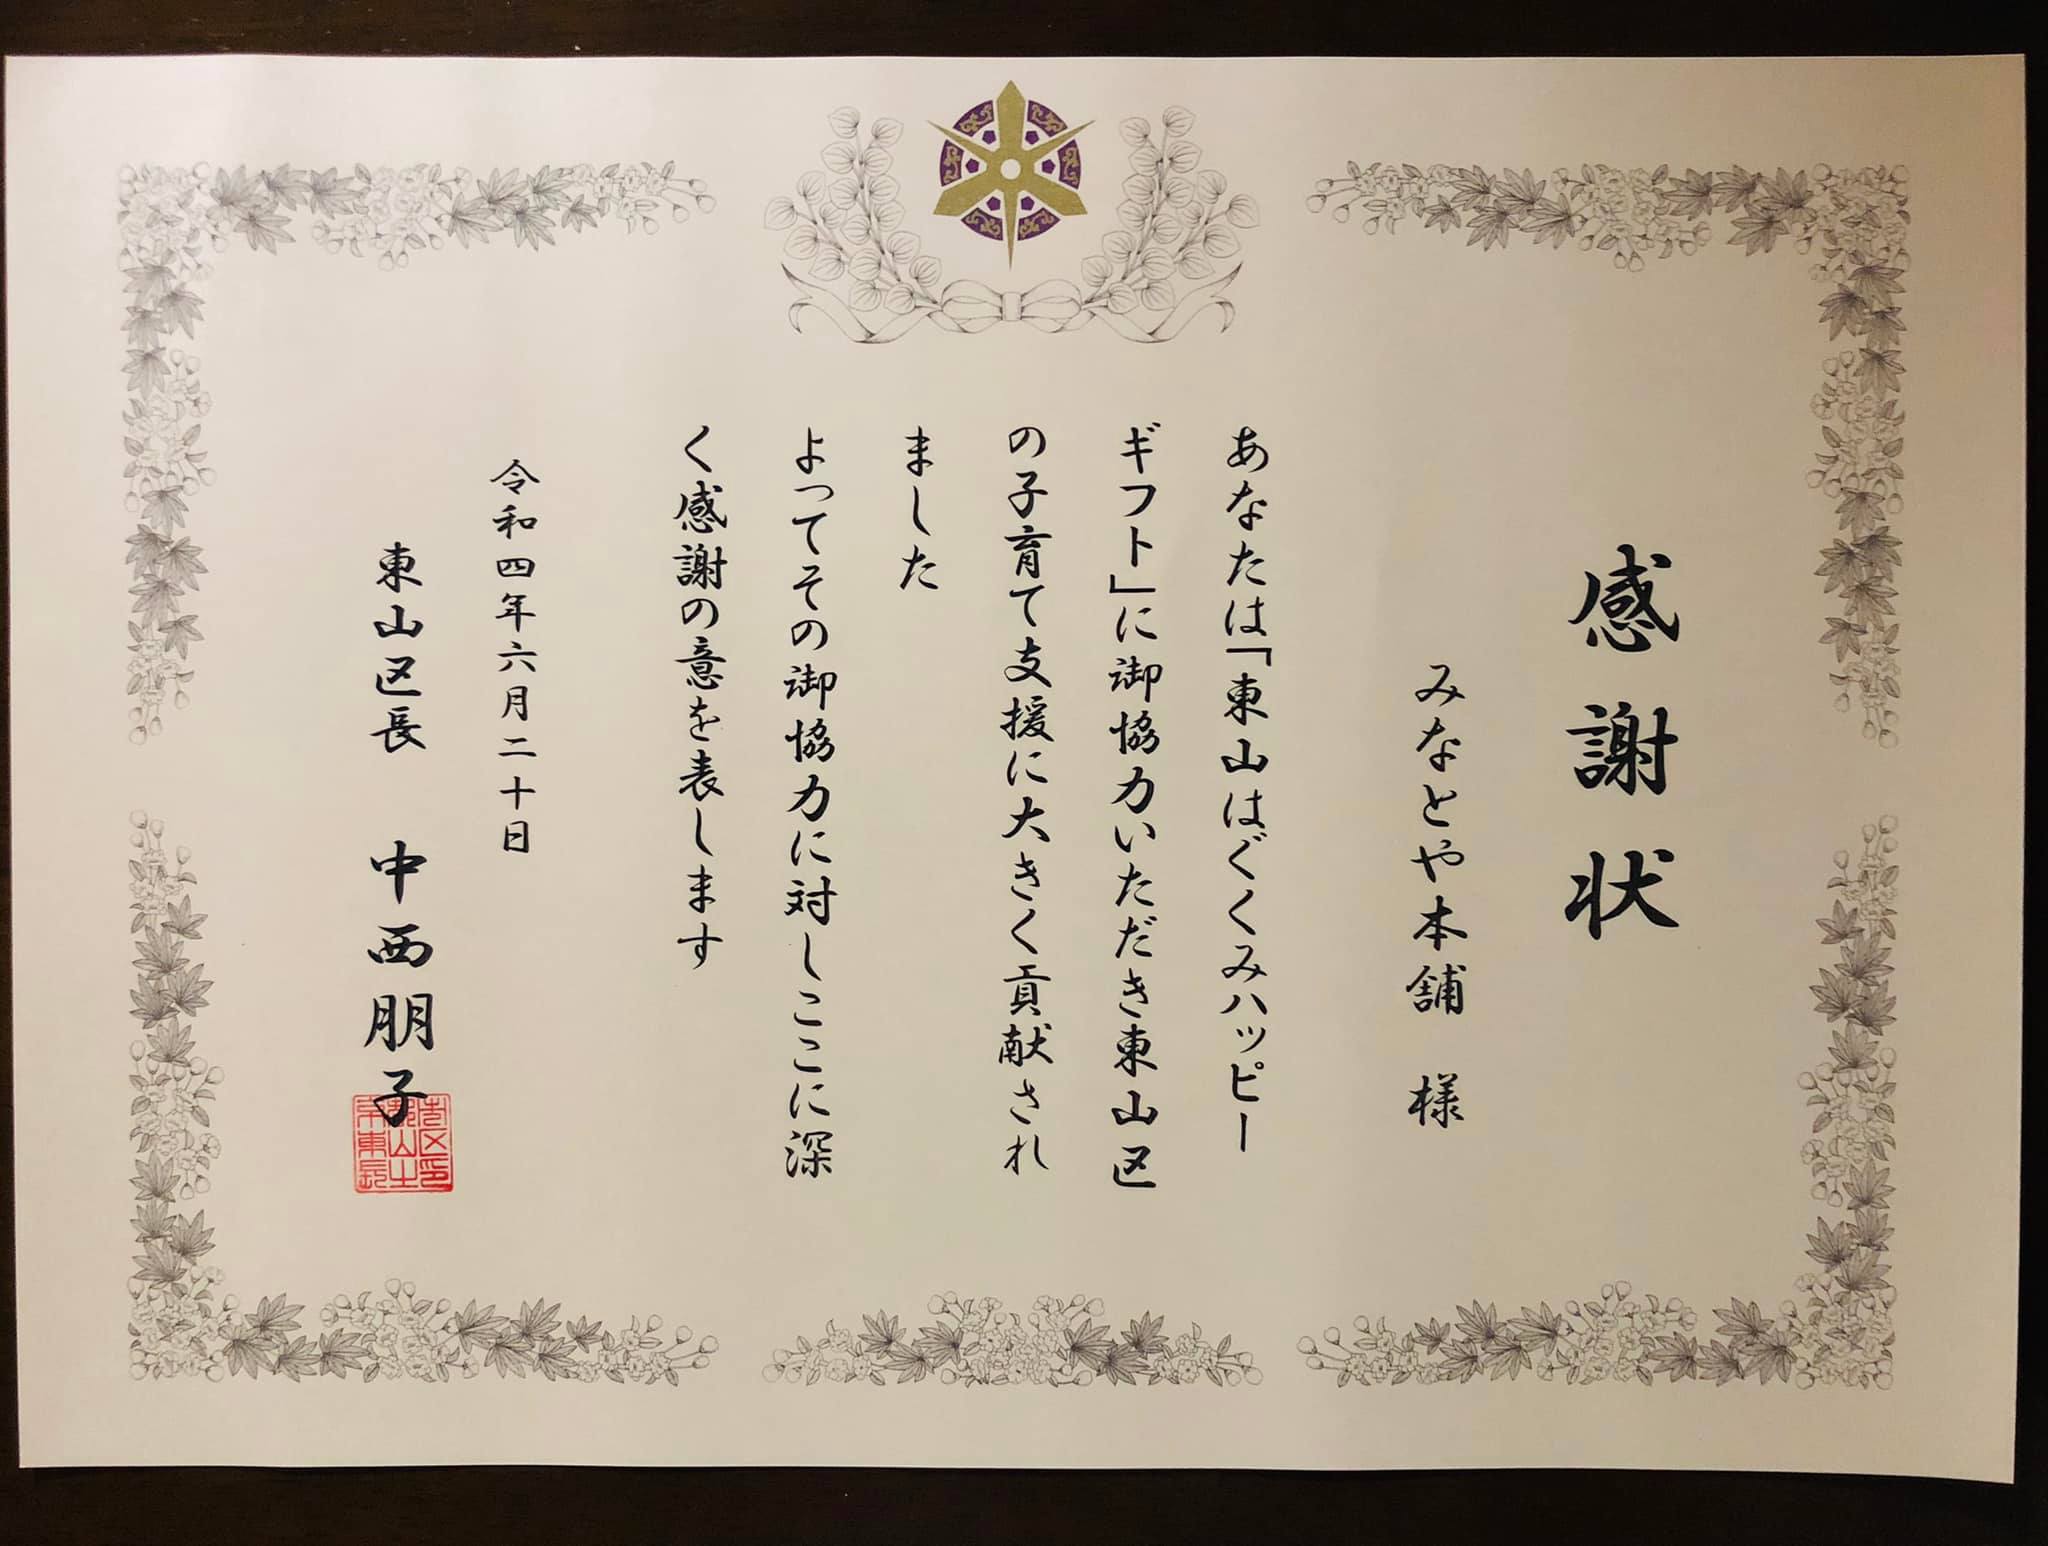 感謝状
みなとや本舗 様
あなたは「東山はぐくみハッピー
ギフト」に御協力いただき東山区
の子育て支援に大きく貢献され
ました
よってその御協力に対しここに深
く感謝の意を表します
令和四年六月二十日
東山区長 中西朋子